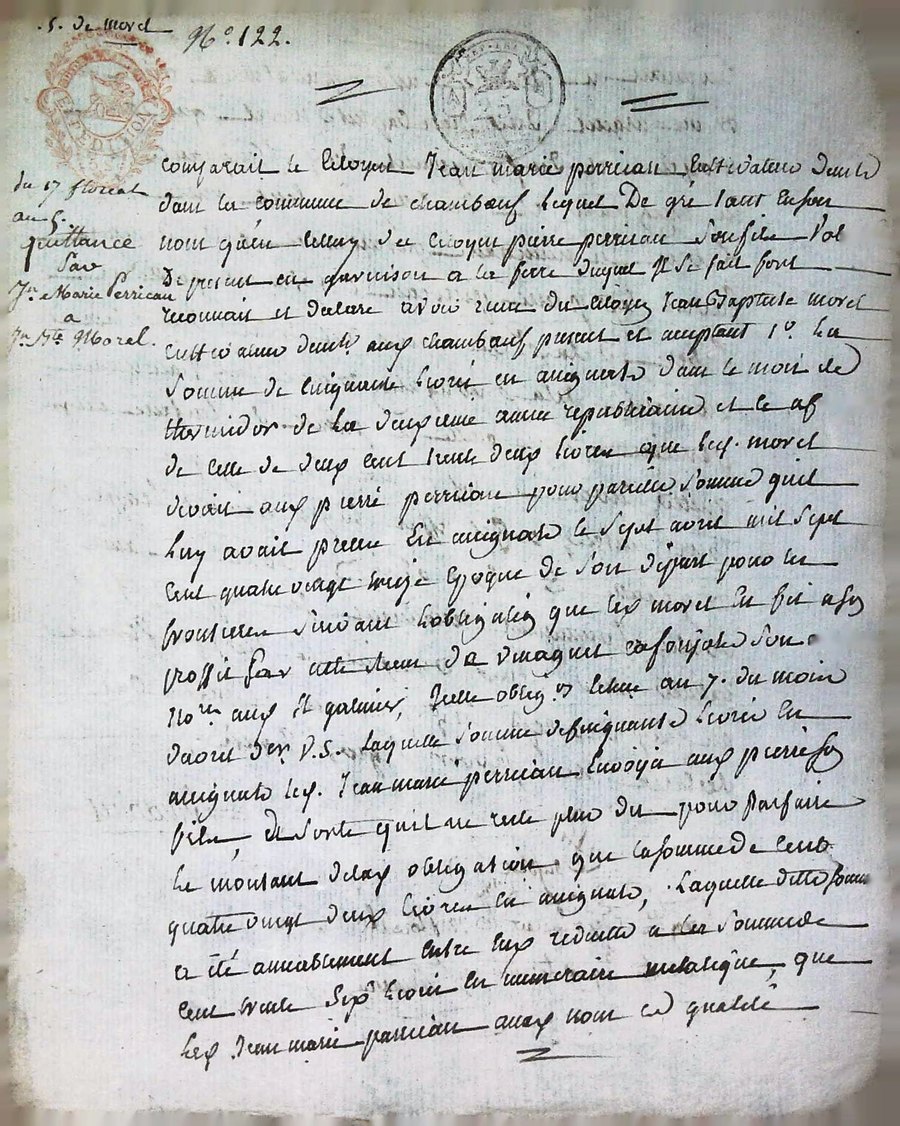 .5. de morel
N.° 122.
EXPED. LYON
du 17 floreal
an 5.
quittance
par
Jn. Marie Perricau
a
Jn. Bte. Morel.
Comparait le Citoyen Jean marie perricau Cultivateur demt
dans la commune de chambeuf lequel De gré tant en son
nom qu'en celluy de Citoyen pierre perricau son fils vol
De present en garnison a la ferre duquel Il se fait fort
reconnait et declare avoir recu du Citoyen Jean Baptiste morel
Cultivateur demt. aud chambeuf present et acceptant 1° La
Somme de Cinquante Livres en assignats dans le mois de
thermidor de La deuxieme année republicaine et le
de celle de deux cent trente deux Livres que led. morel
devait aud pierre perricau pour pareille somme quil
luy avait prette En assignats le sept avril mil sept
Cent quatre vingt treize Epoque de son départ pour les
frontieres suivant Lobligation que led morel En fit a son
proffit par
Nore. aud St galmier, Ladite oblign en datte au 7. du mois
davril der. V.S. Laquelle somme de Cinquante Livres En
assignats led. Jean marie perricau Envoya aud pierre son
fils, de sorte quil ne reste plus du pour Parfaire
le montant de lad obligation que la somme de Cent
quatre vingt deux Livres en assignats, Laquelle ditte somme
a été amiablement Entre Eux reduitte a la somme de
Cent trente six Livres en numeraire metalique, que
led Jean marie perricau auxd nom et qualité